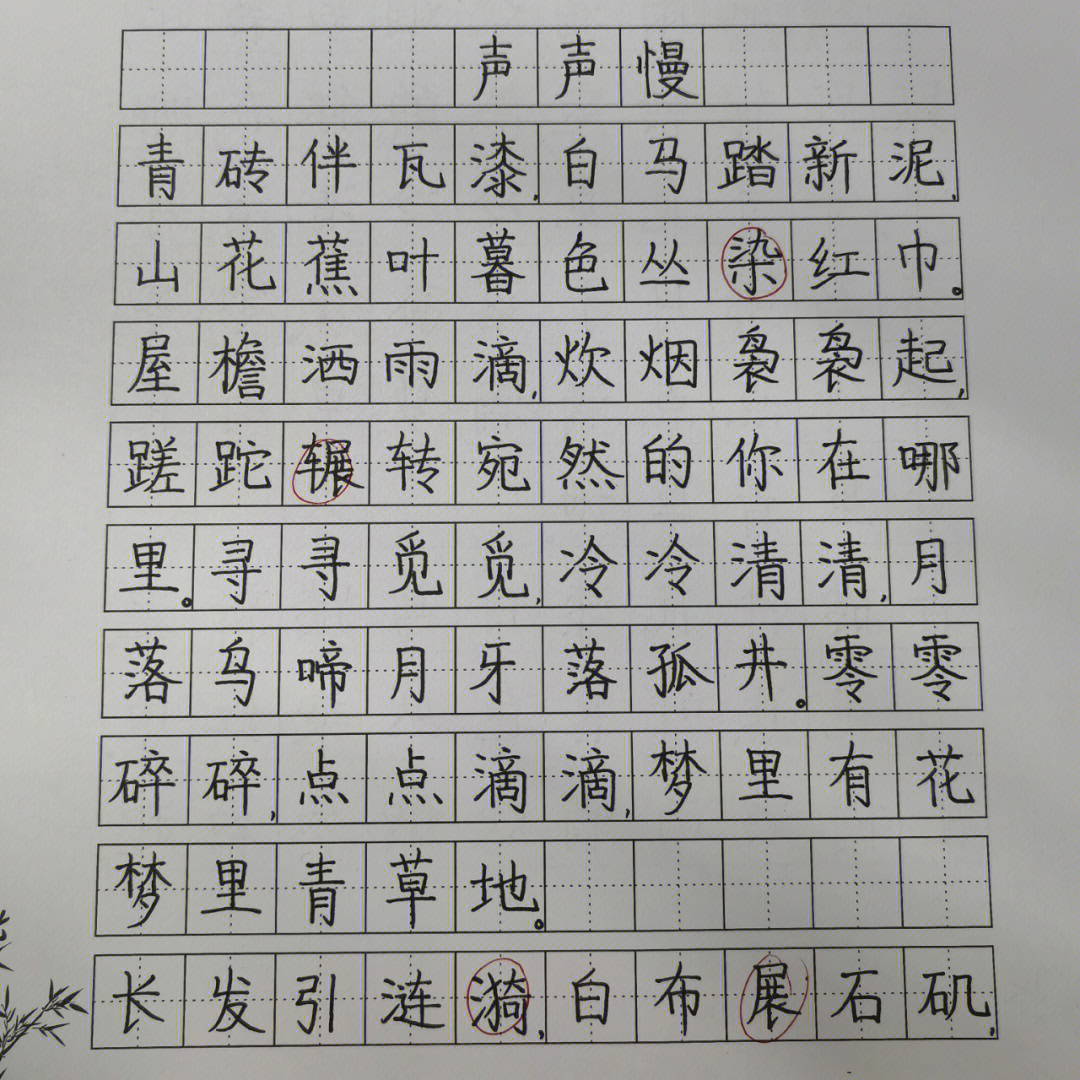 声声慢
青砖伴瓦漆,白马踏新泥,
山花蕉叶暮色丛染红巾。
屋檐洒雨滴,炊烟袅袅起,
蹉跎辗转宛然的你在哪
里。寻寻觅觅,冷冷清清,月
落乌啼月牙落孤井。零零
碎碎,点点滴滴,梦里有花
梦里青草地。
长发引涟漪,白布展石矶,